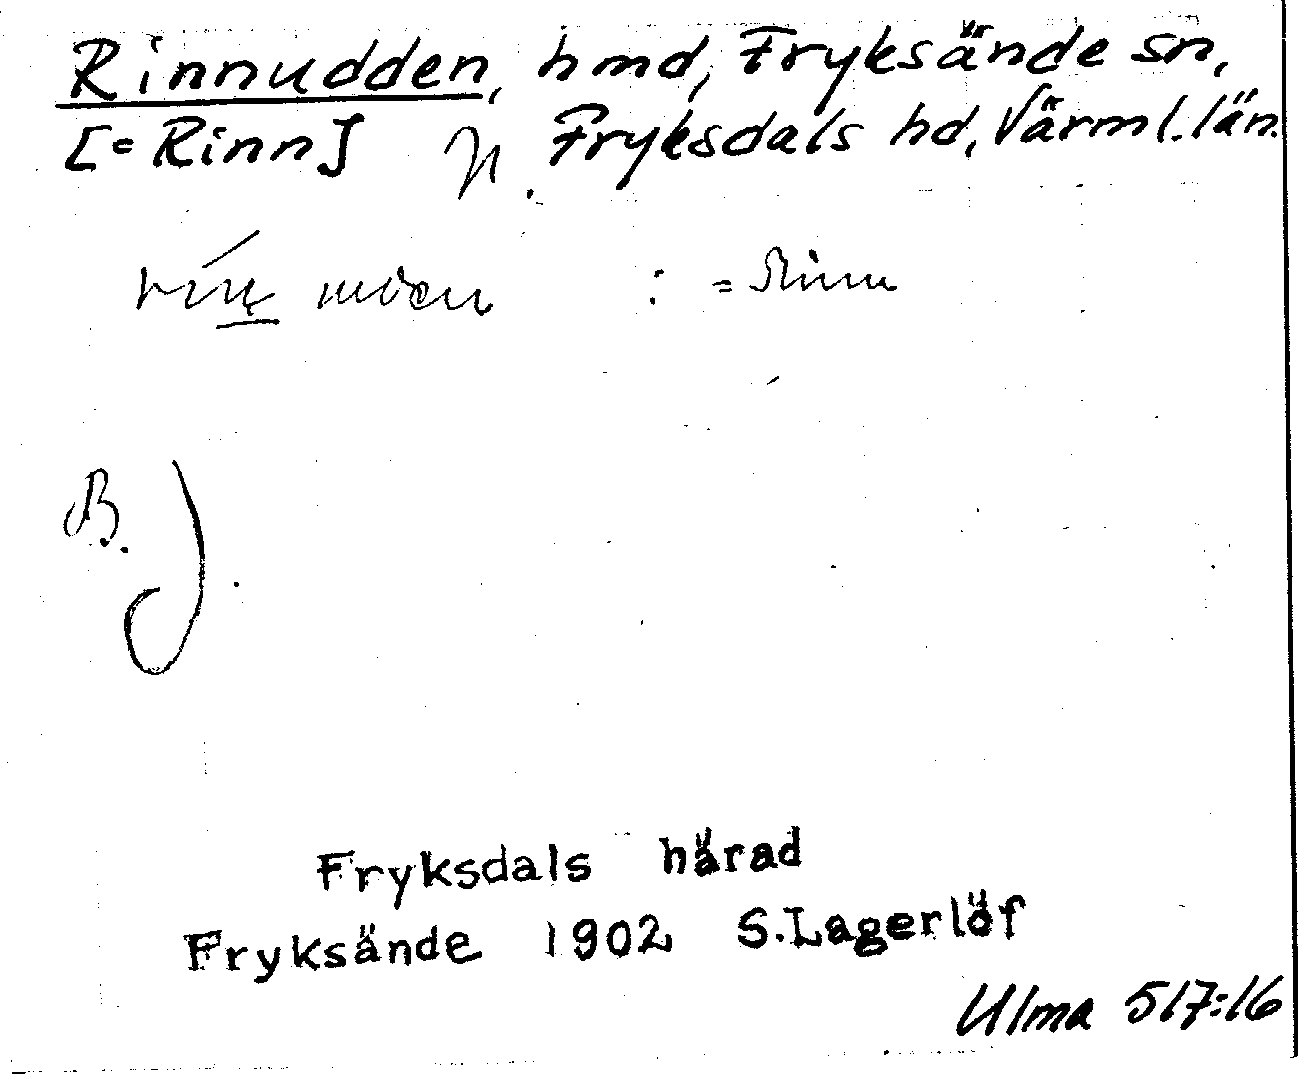 Rinnudden, hmd, Fryksände sn,
[= Rinn] Fryksdals hd, Värml. län.
: = Rinn
B.
Fryksdals härad
Fryksände 1902 S. Lagerlöf
Ulma 517:16